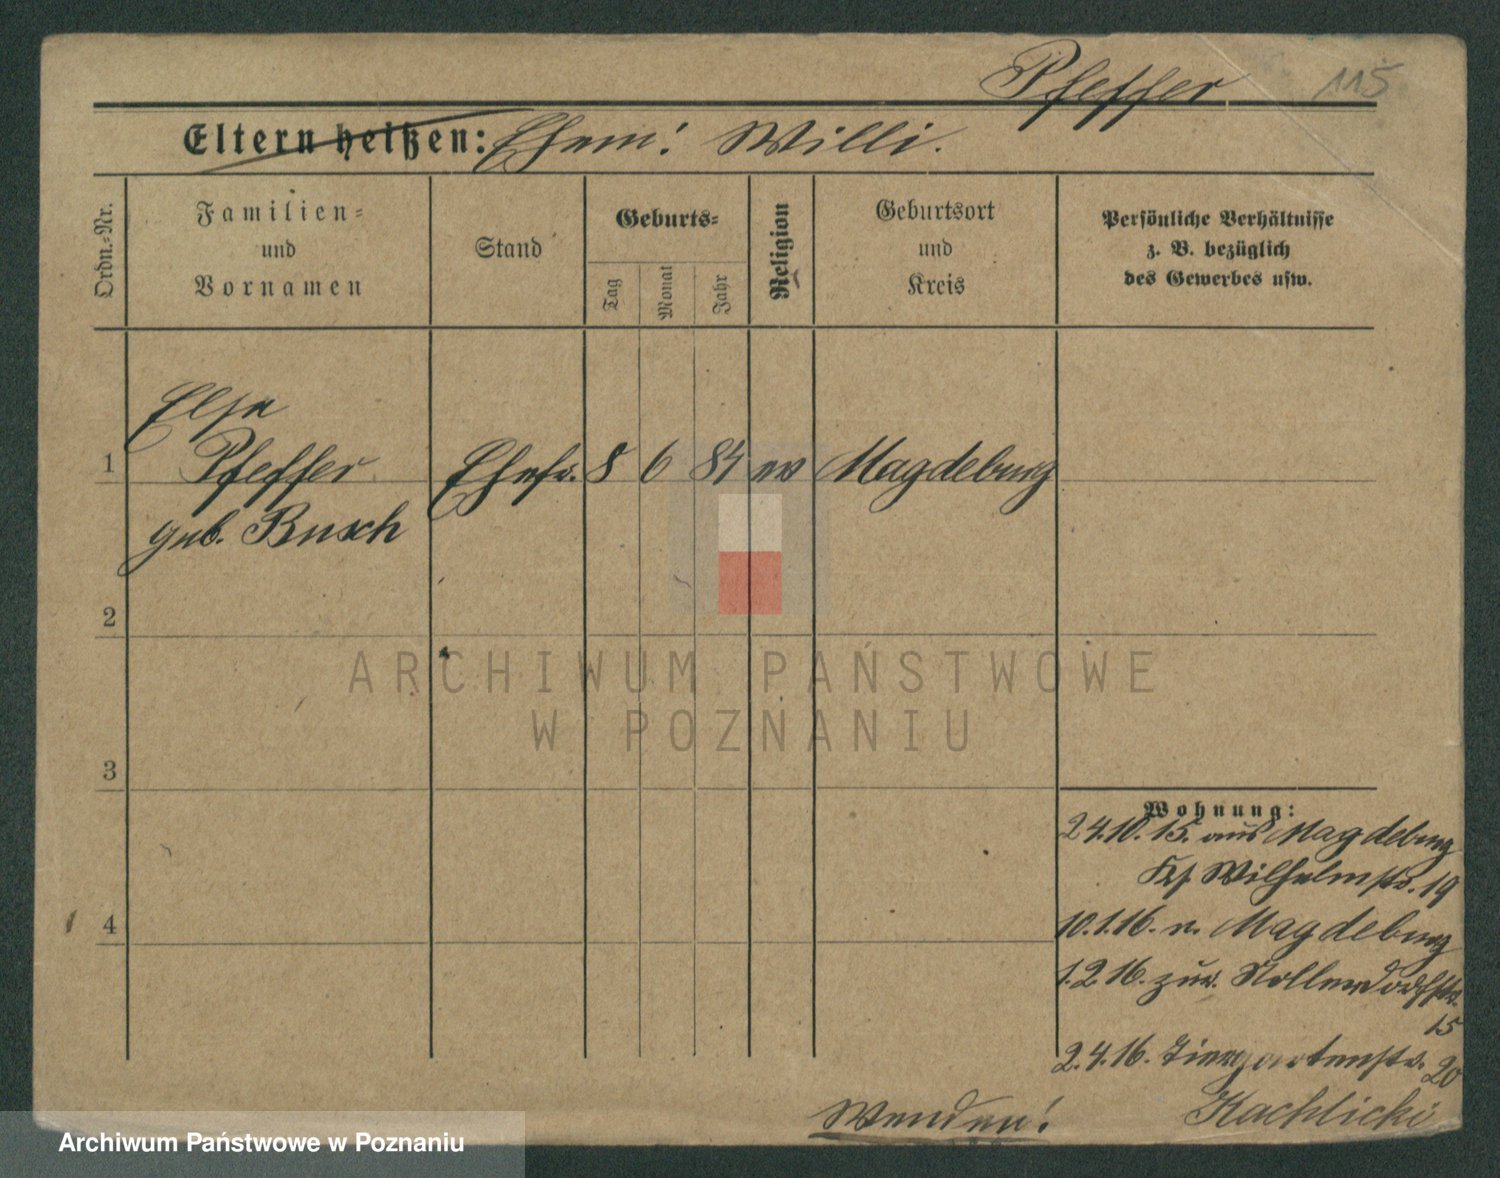 Pfeffer 115
Eltern heißen: Ehem: Willi.
Ordn.-Nr.
Familien-
und
Vornamen
Stand
Geburts-
Tag
Monat
Jahr
Religion
Geburtsort
und
Kreis
Persönliche Verhältnisse
z. B. bezüglich
des Gewerbes usw.
Else
1 Pfeffer Ehefr. 8 6 84 ev Magdeburg
geb. Busch
2
3
4
Wohnung:
24.10.15. aus Magdeburg
Ks. Wilhelmstr. 19
10.1.16. n. Magdeburg
1.2.16. zur. Nollendorfstr.
15
2.4.16. Tiergartenstr. 20
Kachlicki
Wenden!
ARCHIWUM PAŃSTWOWE
W POZNANIU
Archiwum Państwowe w Poznaniu